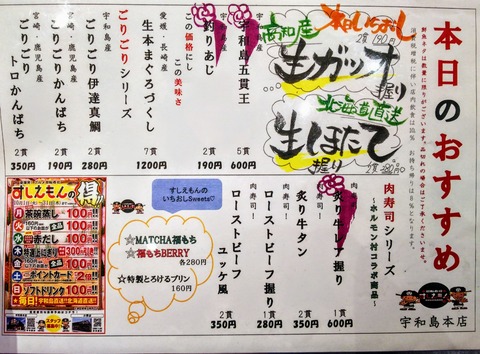 本日のおすすめ
鮮魚ネタは数量に限りがございます。品切れの場合はご了承くださいませ。
消費税増税に伴い店内飲食は10% お持ち帰りは8%となります。
本日いちおし
高知産
2貫190円
生ガツオ
握り
北海道直送
生ほたて
握り
2貫380円
宇和島五貫王
5貫 600円
釣りあじ
2貫 190円
この価格にし
この美味さ
愛媛・長崎産
生本まぐろづくし
7貫 1200円
ごりごりシリーズ
宇和島産
ごりごり伊達真鯛
2貫 280円
宮崎・鹿児島産
ごりごりかんぱち
2貫 190円
宮崎・鹿児島産
ごりごり
トロかんぱち
2貫 350円
肉寿司シリーズ
~ホルモン村コラボ商品~
肉寿司!
炙り牛レア握り
2貫 600円
炙り牛タン
1貫 350円
肉寿司!
ローストビーフ握り
1貫 280円
肉寿司!
ローストビーフ
ユッケ風
2貫 350円
すしえもんの
いちおしSweets♡
☆MATCHA福もち
☆福もちBERRY
各280円
☆特製とろけるプリン
160円
すしえもんの得!!
月 茶碗蒸し 100円!!
火
水 赤だし 100円!!
木 特選上にぎり 300円引き!!
金
土 ポイントカード 2倍!!
日 ソフトドリンク 100円!!
★毎日!宇和島直送!!北海道直送!!
スタッフ募集中!
宇和島本店